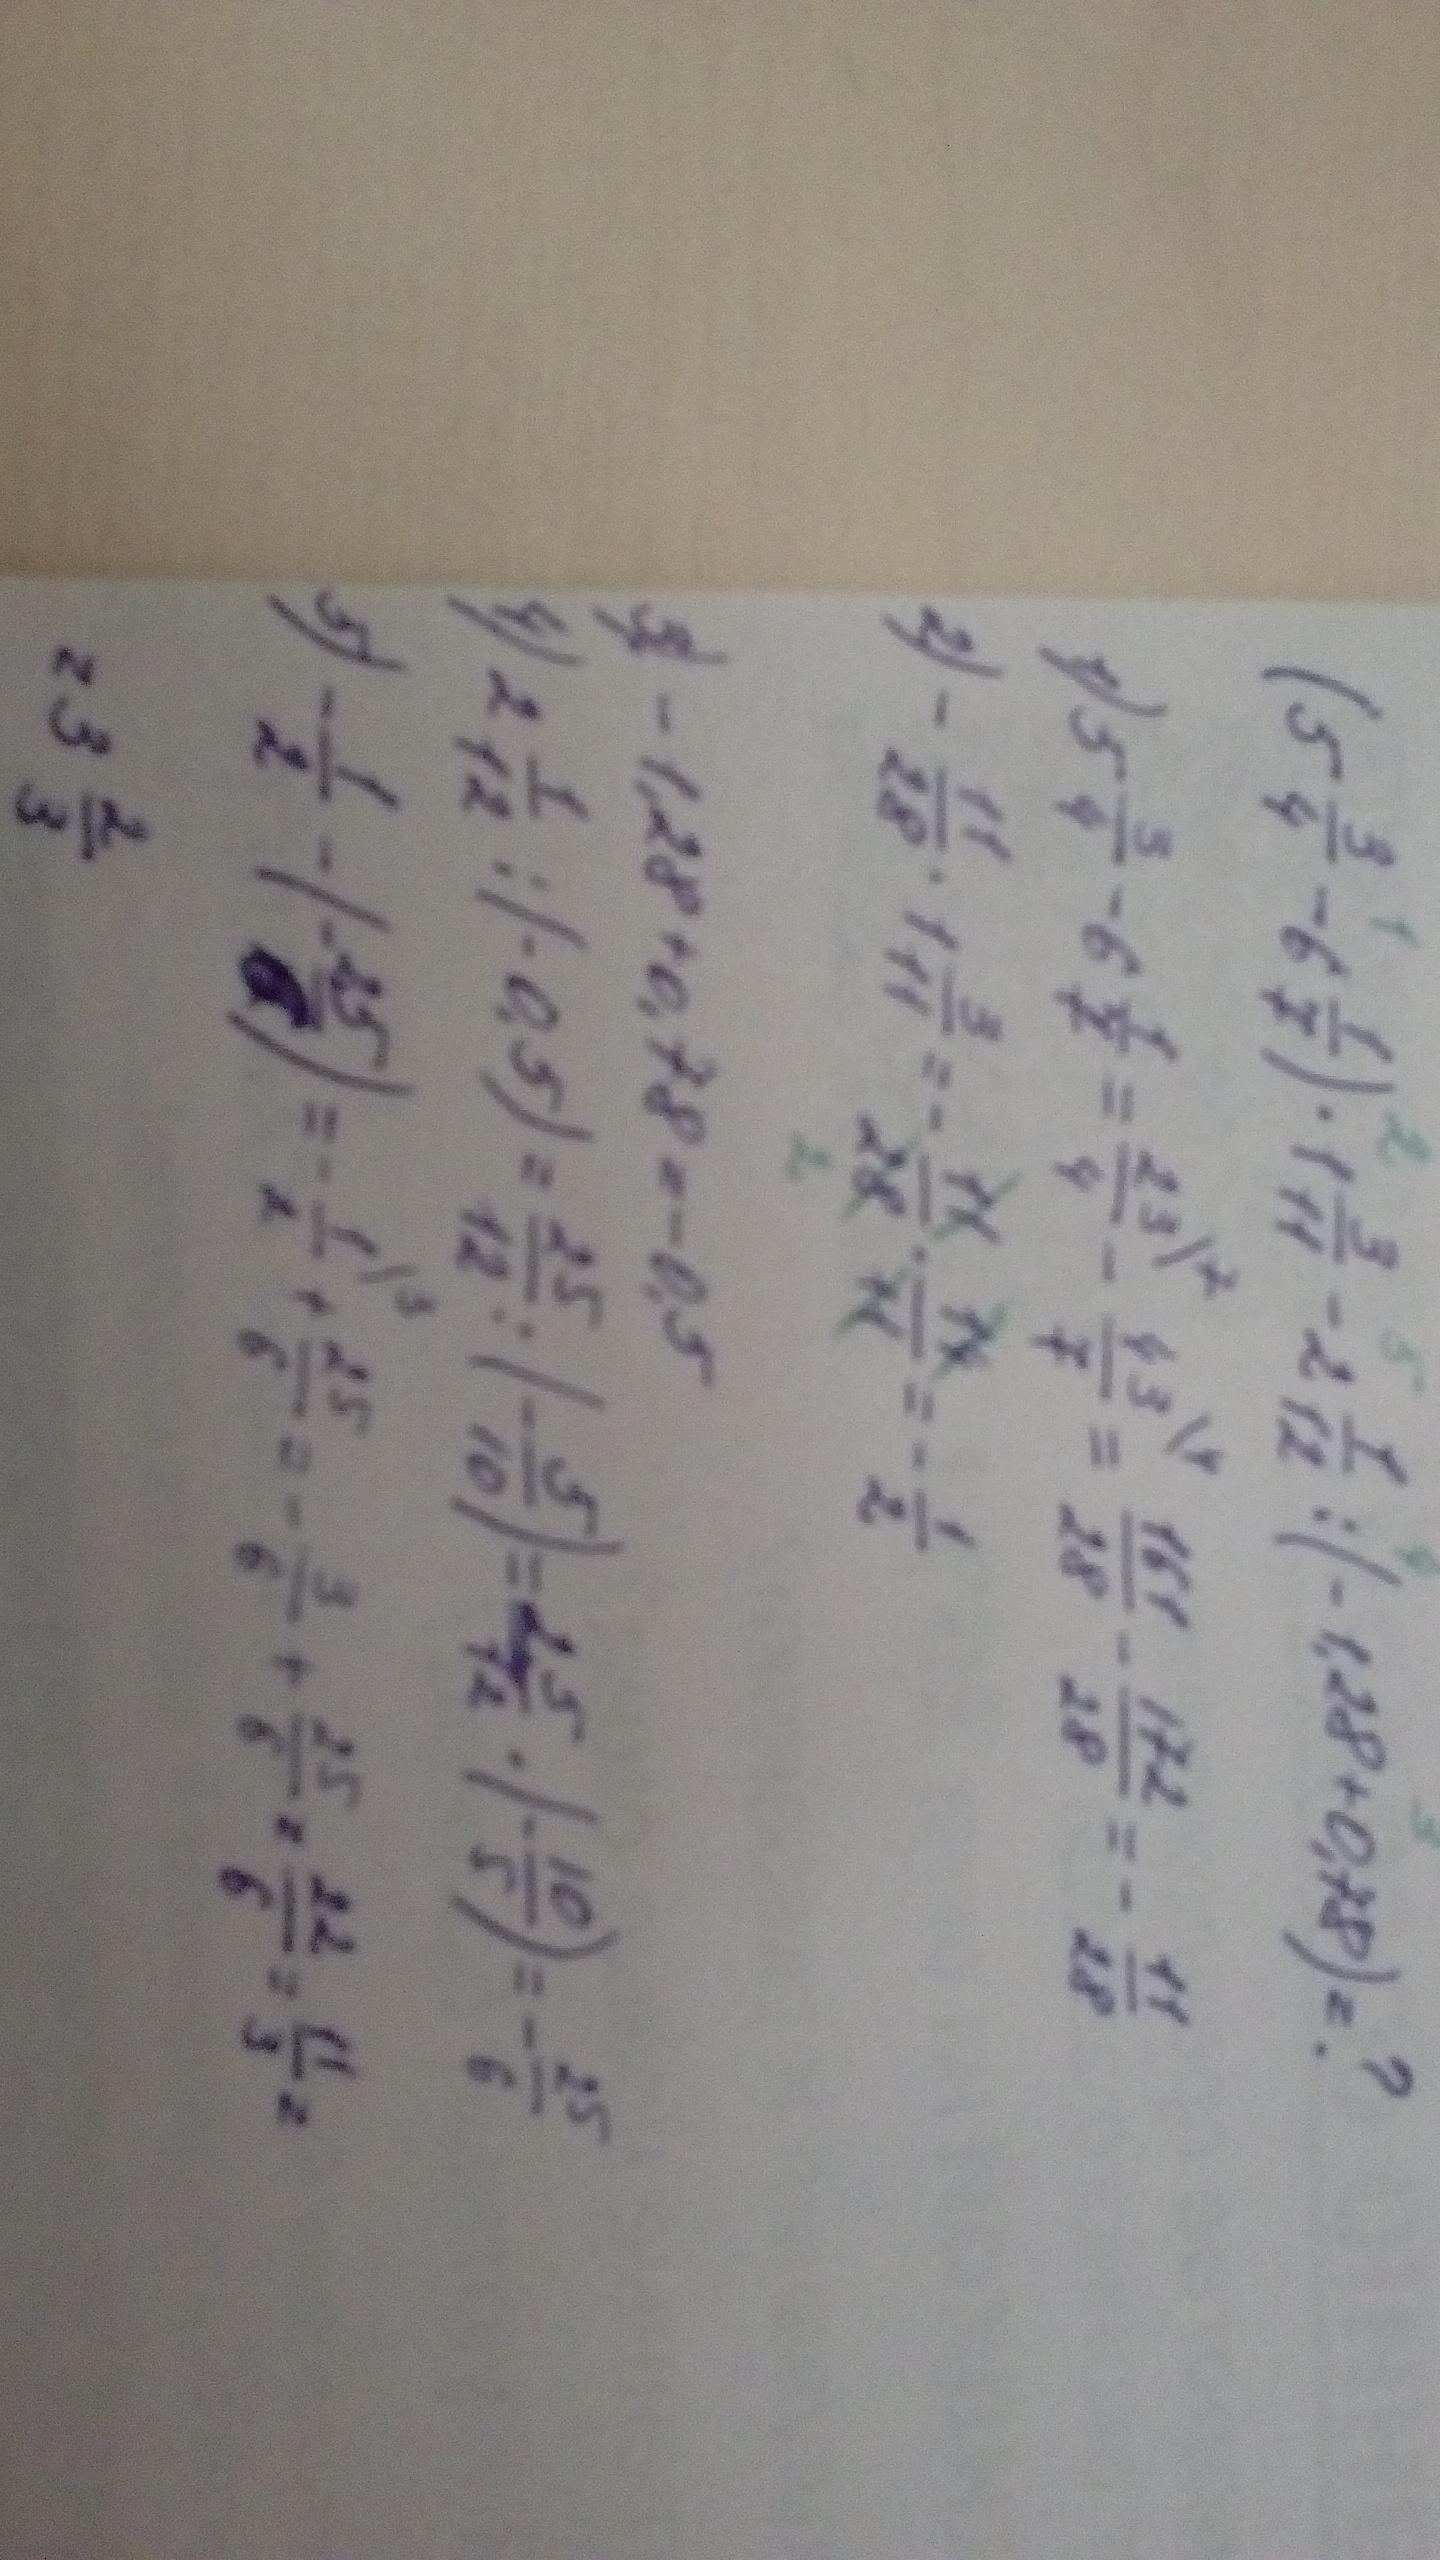 1 2 5 4 3
(5 3/4 - 6 1/7) · 1 3/11 - 2 1/12 : (-1,28 + 0,78) = ?
1) 5 3/4 - 6 1/7 = 23/4 \7 - 43/7 \4 = 161/28 - 172/28 = - 11/28
2) - 11/28 · 1 3/11 = - 11/28 · 14/11 = - 1/2
2
3) -1,28 + 0,78 = -0,5
4) 2 1/12 : (-0,5) = 25/12 : (- 5/10) = 25/12 · (- 10/5) = - 25/6
5) - 1/2 - (- 25/6) = - 1/2 \3 + 25/6 = - 3/6 + 25/6 = 22/6 = 11/3 =
= 3 2/3